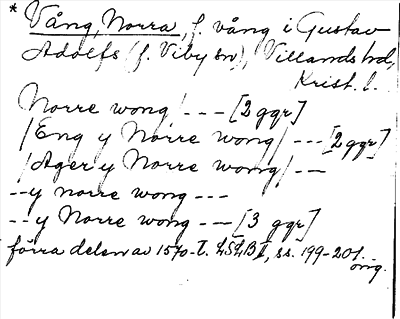 * Vång, Norra, f. vång i Gustav
Adolfs (f. Viby sn), Villands hd,
Krist. l.
Norre wong / - - - [2 ggr]
/ Eng y Norre wong / - - - [2 ggr]
/ Ager y Norre wong / - -
- - y norre wong - - -
- - y Norre wong - - - [3 ggr]
förra delen av 1570-t. LSLB I, ss. 199-201.
orig.